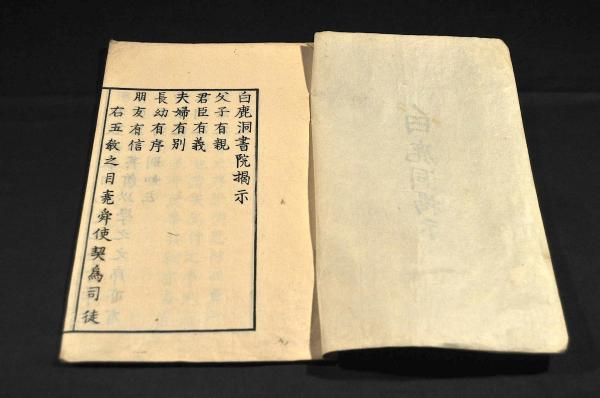 白鹿洞揭示
白鹿洞書院揭示
父子有親
君臣有義
夫婦有別
長幼有序
朋友有信
右五敎之目堯舜使契爲司徒